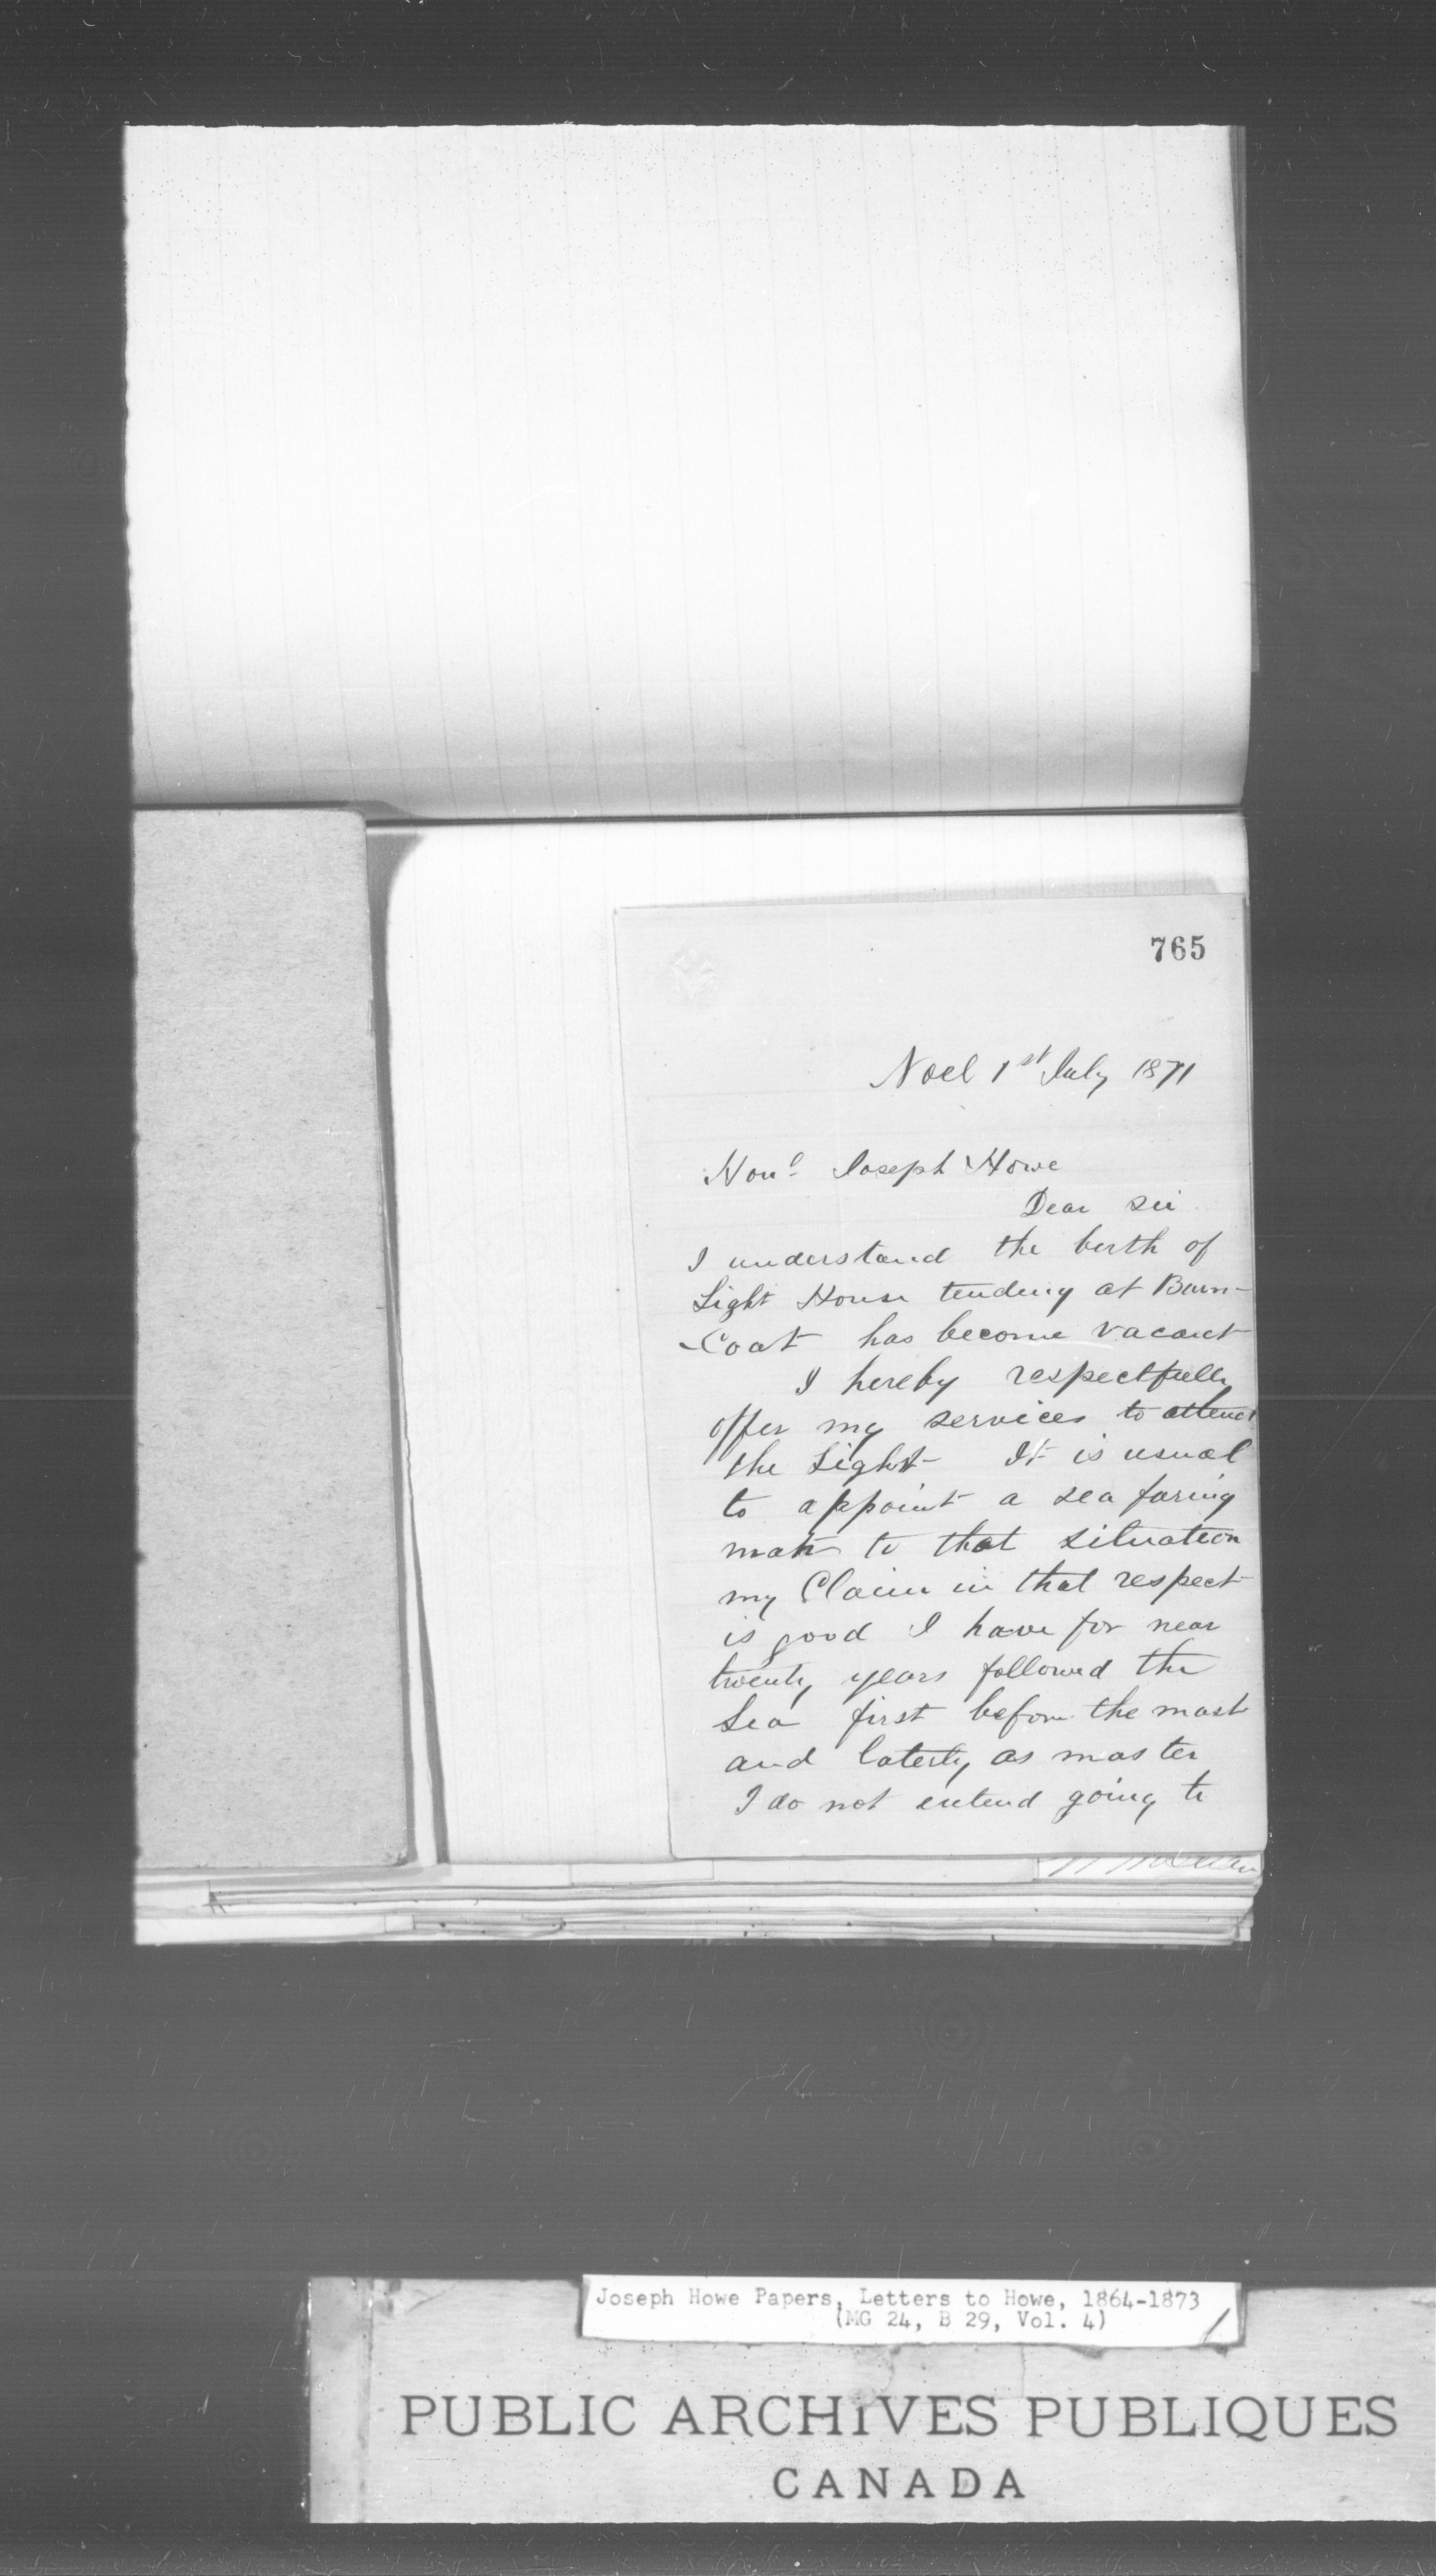 765
Noel 1st July 1871
Honl Joseph Howe
Dear Sir
I understand the berth of
Light House tending at Burn-
-Coat has become vacant
I hereby respectfully
offer my services to attend
the Light It is usual
to appoint a sea faring
man to that situation
my Claim in that respect
is good I have for near
twenty years followed the
Sea first before the mast
and laterly as master
I do not entend going to
Joseph Howe Papers, Letters to Howe, 1864-1873
(MG 24, B 29, Vol. 4)
PUBLIC ARCHIVES PUBLIQUES
CANADA